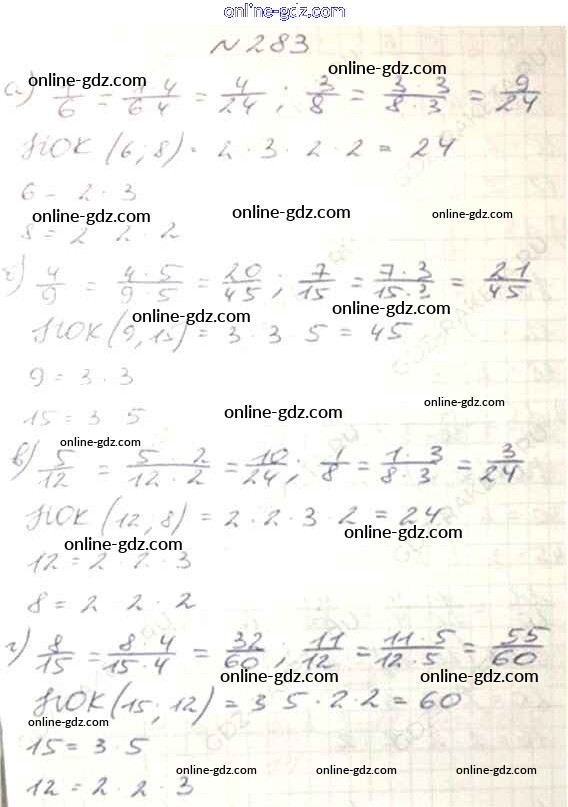 online-gdz.com
N 283
online-gdz.com online-gdz.com
а) 1/6 = 1 4/6 4 = 4/24 ; 3/8 = 3 · 3/8 · 3 = 9/24
НОК (6; 8) = 2 · 3 · 2 · 2 = 24
6 = 2 · 3
online-gdz.com online-gdz.com online-gdz.com
8 = 2 2 · 2
4/9 = 4 · 5/9 · 5 = 20/45 ; 7/15 = 7 · 3/15 · 3 = 21/45
online-gdz.com online-gdz.com
НОК (9, 15) = 3 · 3 · 5 = 45
9 = 3 · 3
online-gdz.com online-gdz.com
15 = 3 5
online-gdz.com
в) 5/12 = 5 · 2/12 · 2 = 10/24 ; 1/8 = 1 · 3/8 · 3 = 3/24
НОК (12, 8) = 2 · 2 · 3 · 2 = 24
online-gdz.com online-gdz.com
12 = 2 · 2 · 3
8 = 2 2 · 2
г) 8/15 = 8 · 4/15 · 4 = 32/60 ; 11/12 = 11 · 5/12 · 5 = 55/60
online-gdz.com online-gdz.com
НОК (15; 12) = 3 5 · 2 · 2 = 60
online-gdz.com
15 = 3 · 5
online-gdz.com online-gdz.com online-gdz.com
12 = 2 · 2 · 3